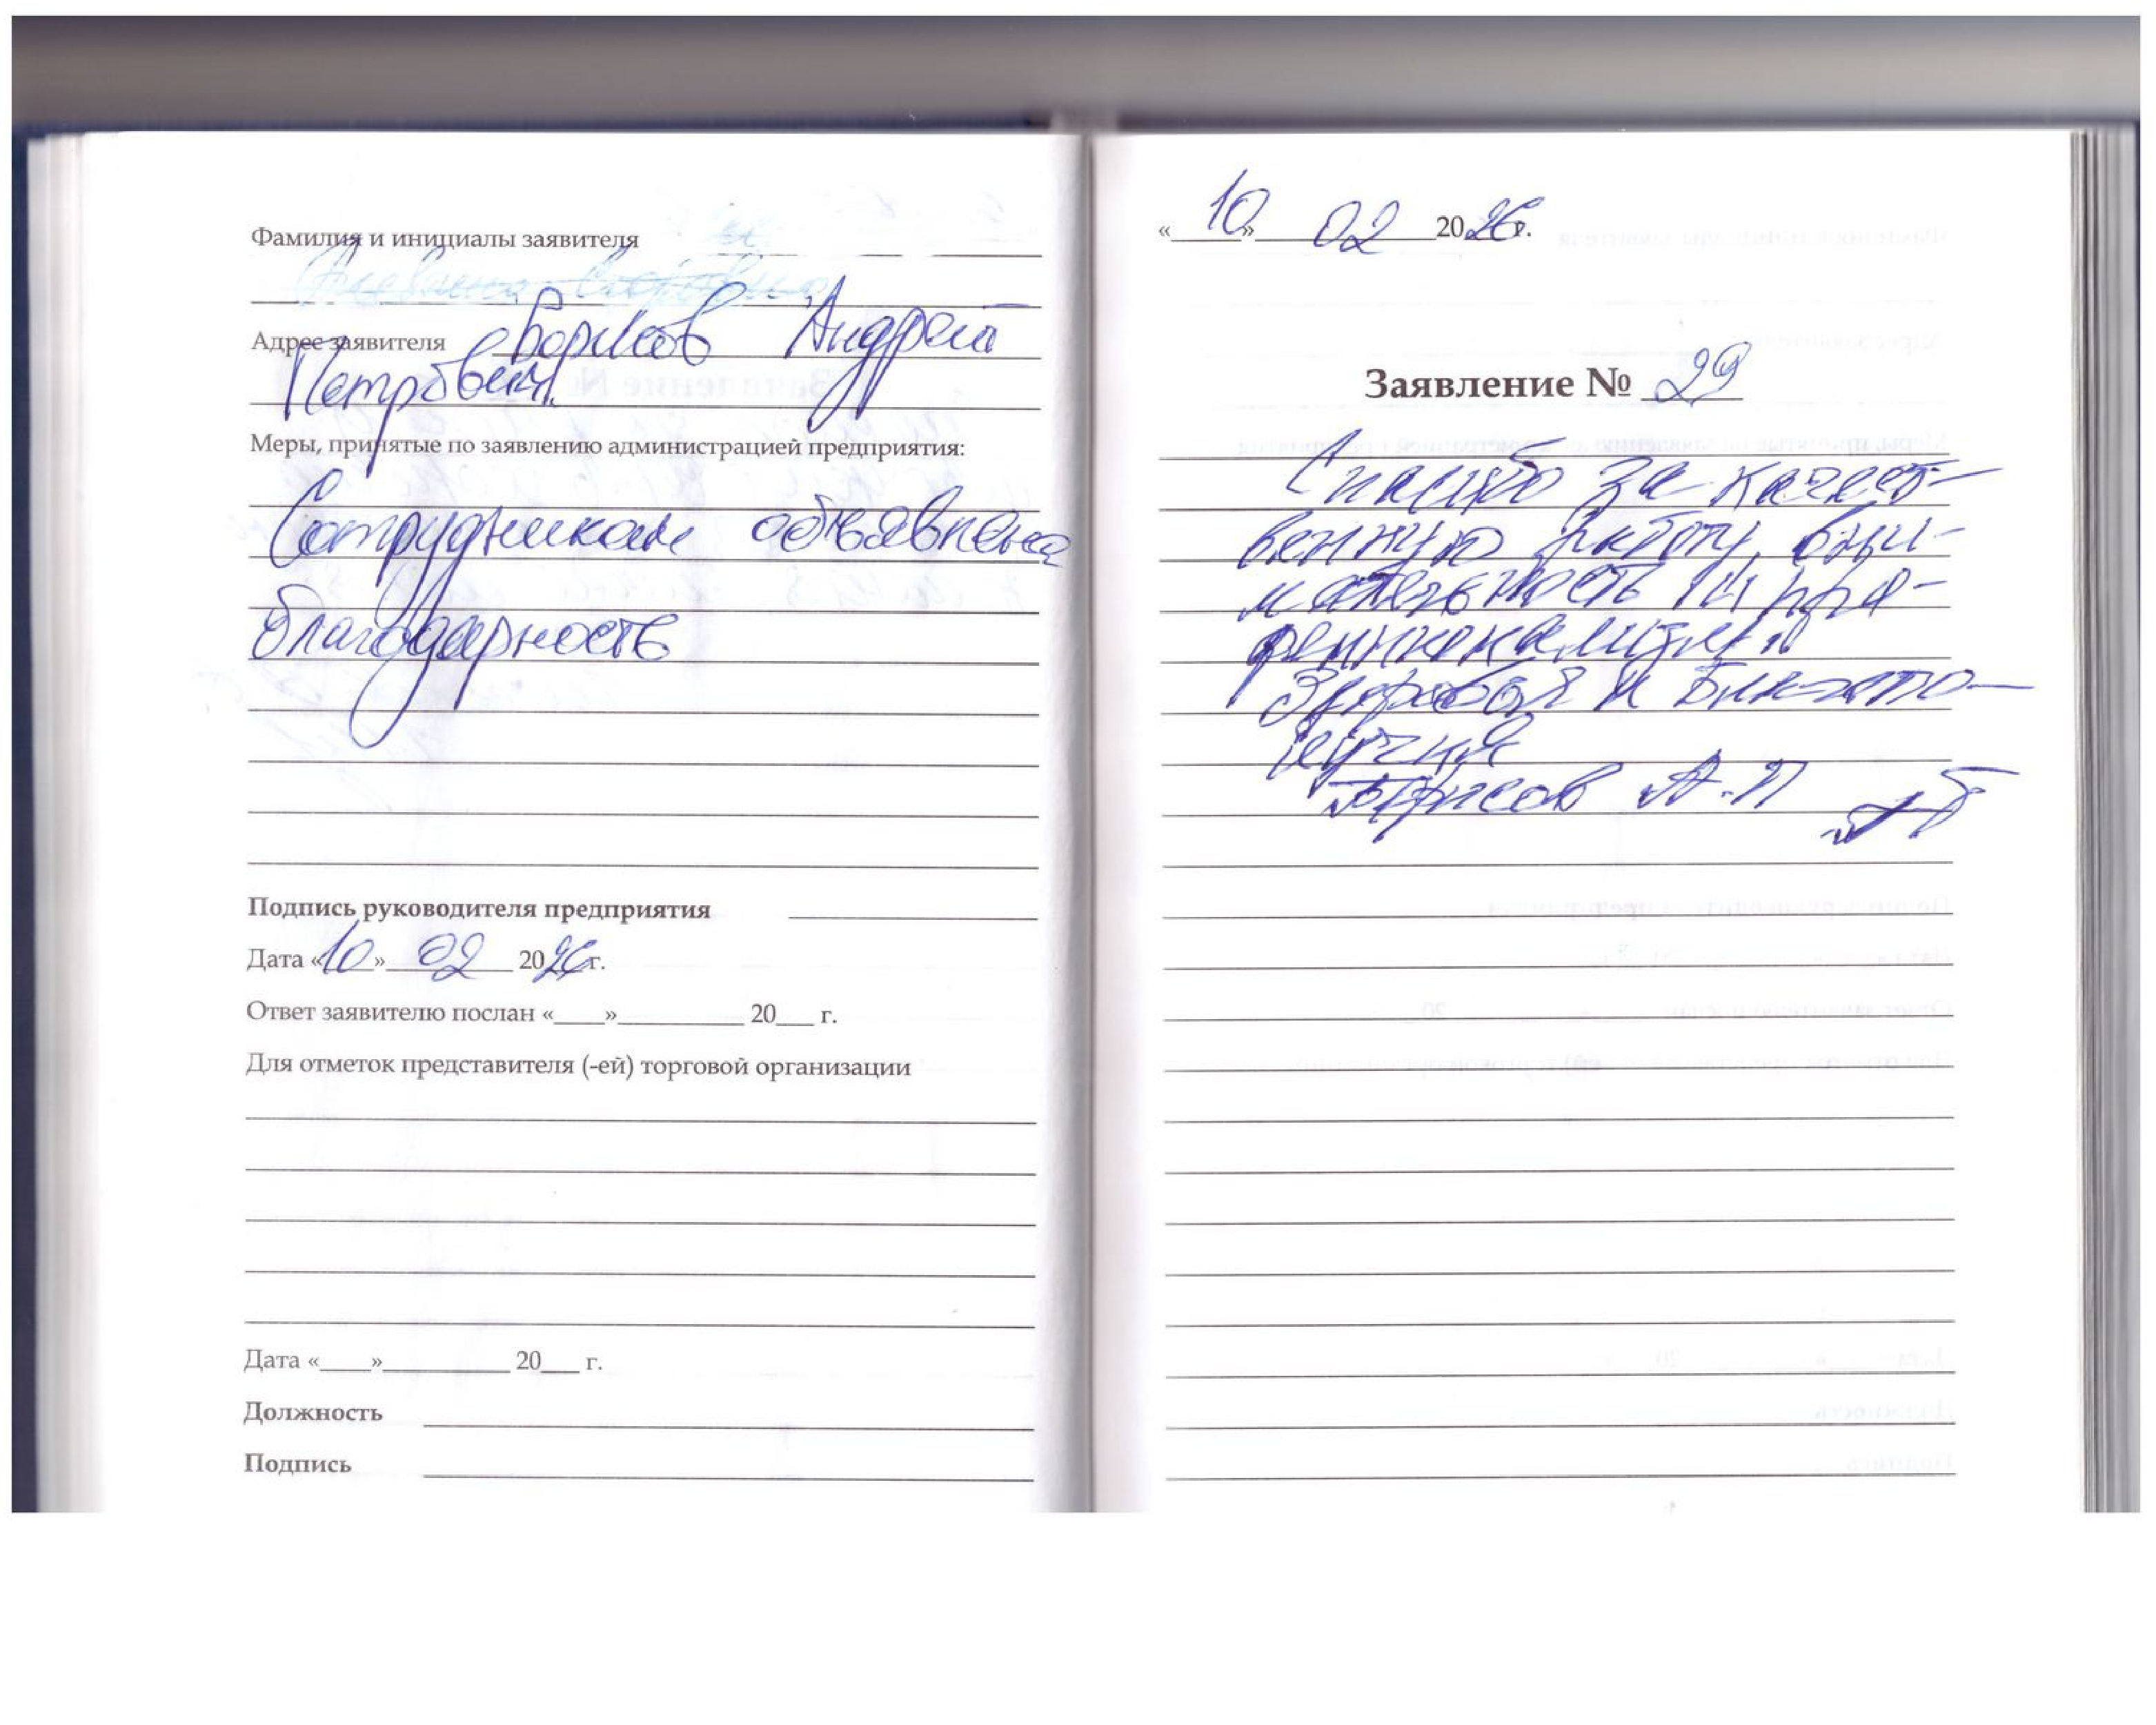 Фамилия и инициалы заявителя
Адрес заявителя Борисов Андрей
Петрович
Меры, принятые по заявлению администрацией предприятия:
Сотрудникам объявлена
благодарность
Подпись руководителя предприятия
Дата «10» 02 2026 г.
Ответ заявителю послан «____»__________ 20___ г.
Для отметок представителя (-ей) торговой организации
Дата «____»__________ 20___ г.
Должность
Подпись
«10» 02 2026 г.
Заявление № 29
Спасибо за качест-
венную работу, вни-
мательность и про-
фессионализм
Здоровья и благопо-
лучия
Борисов А.П